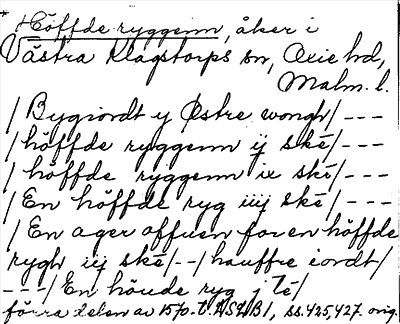 * Höffde ryggenn, åker i
Västra Klagstorps sn, Oxie hd,
Malm. l.
/ Bygiordt y Østre wongh / ---
/ höffde ryggenn ij ske / ---
/ höffde ryggenn ix ske / ---
/ En höffde ryg iiij ske / ---
/ En ager offuen for en höffde
rygh iij ske / -- / hauffre iordt /
--- / En höude ryg j
förra delen av 1570. t. ss. 425, 427. orig.